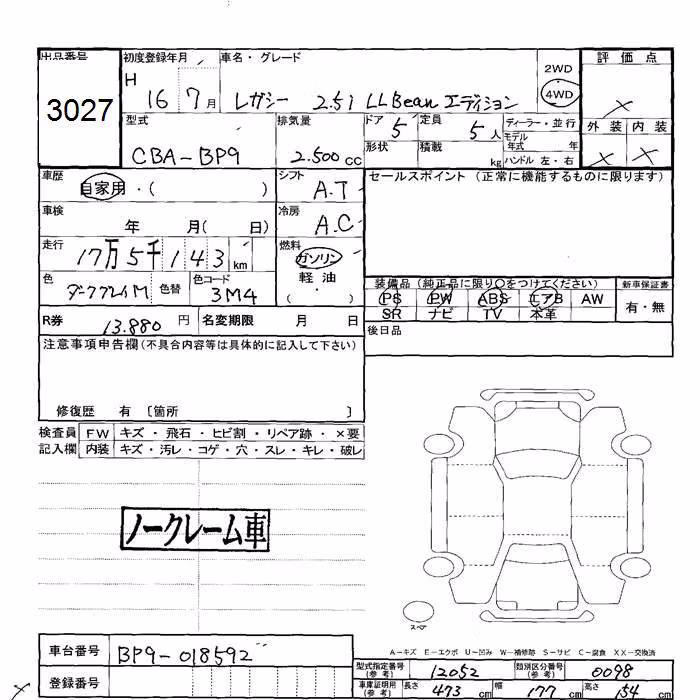 出品番号 初度登録年月 車名・グレード 2WD 評価点
3027 H 16 7月 レガシー 2.5i LLBeanエディション 4WD ×
型式 排気量 ドア 定員 ディーラー・並行 外装 内装
CBA-BP9 2.500cc 5 5人 モデル年式 年 × ×
形状 積載 kg ハンドル 左・右
車歴 シフト セールスポイント (正常に機能するものに限ります)
自家用・( ) A.T
車検 冷房
年 月( 日) A.C
走行 燃料
17万5千143km ガソリン
色 色替 色コード 軽油
M 3M4 ( )
装備品 (純正品に限り○をつけてください) 新車保証書
PS PW ABS エアB AW 有・無
SR ナビ TV 本革
R券 13.880円 名変期限 月 日
後日品
注意事項申告欄(不具合内容等は具体的に記入して下さい)
修復歴 有 [箇所 ]
検査員 FW キズ・飛石・ヒビ割・リペア跡・×要
記入欄 内装 キズ・汚レ・コゲ・穴・スレ・キレ・破レ
ノークレーム車
スペア
A-キズ E-エクボ U-凹み W-補修跡 S-サビ C-腐食 XX-交換済
車台番号 BP9-018592
登録番号
型式指定番号(参考) 12052 類別区分番号(参考) 0098
車庫証明用(参考) 長さ 473cm 幅 177cm 高さ 154cm
×